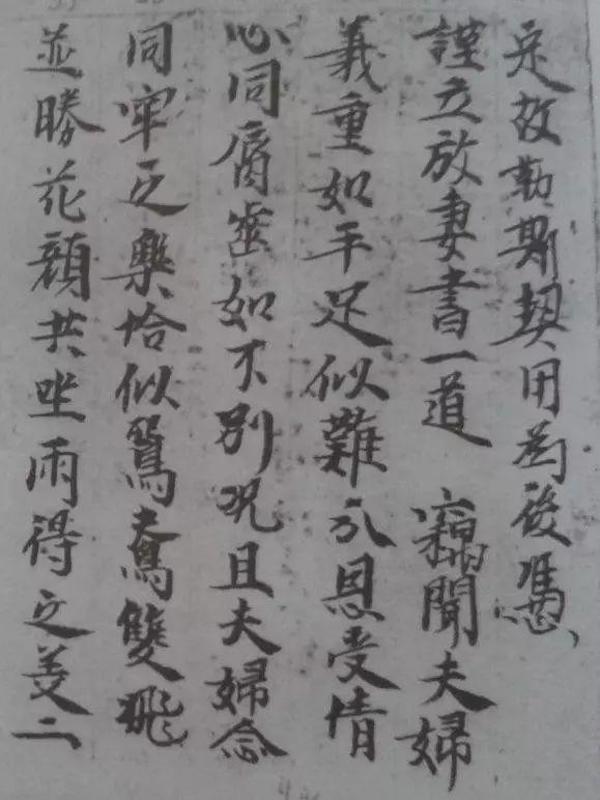 定故勒斯契用為後憑
謹立放妻書一道 竊聞夫婦
義重如手足似難分恩受情
心同脣齒如不別况且夫婦念
同牢之樂恰似鴛鴦雙飛
並勝花顔共坐兩得之美二